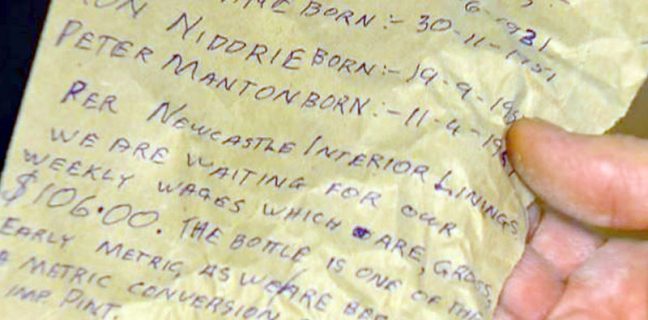 BORN :- 30-11-1951
NIDDRIE BORN :- 19-9-19
PETER MANTON BORN :- 11-4-19
PER NEWCASTLE INTERIOR LININGS
WE ARE WAITING FOR OUR
WEEKLY WAGES WHICH ARE, GROSS,
$106.00. THE BOTTLE IS ONE OF THE
EARLY METRIC, AS WE ARE
METRIC CONVERSION
IMP. PINT.